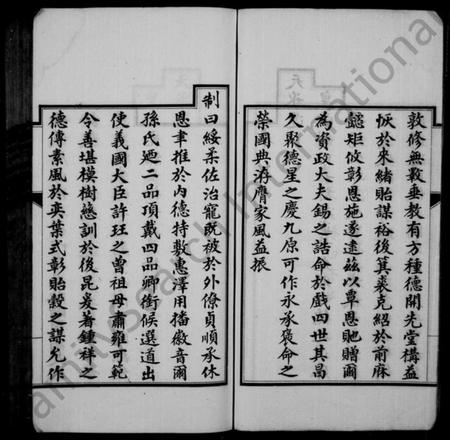 敦修無斁垂教有方種德開先堂構益
恢於來緒貽謀裕後箕裘克紹於前麻
懿矩攸彰恩施遂逮茲以覃恩貤贈爾
為資政大夫錫之誥命於戲四世其昌
久聚德星之慶九原可作永承褒命之
榮國典洊膺家風益振
制曰綏柔佐治寵既被於外僚貞順承休
恩聿推於內德持敷惠澤用播徽音爾
孫氏迺二品頂戴四品卿銜候選道出
使義國大臣許玨之曾祖母肅雍可範
令善堪模樹慈訓於後昆爰著鍾祥之
德傳素風於奕葉式彰貽穀之謀允作
FamilySearch International